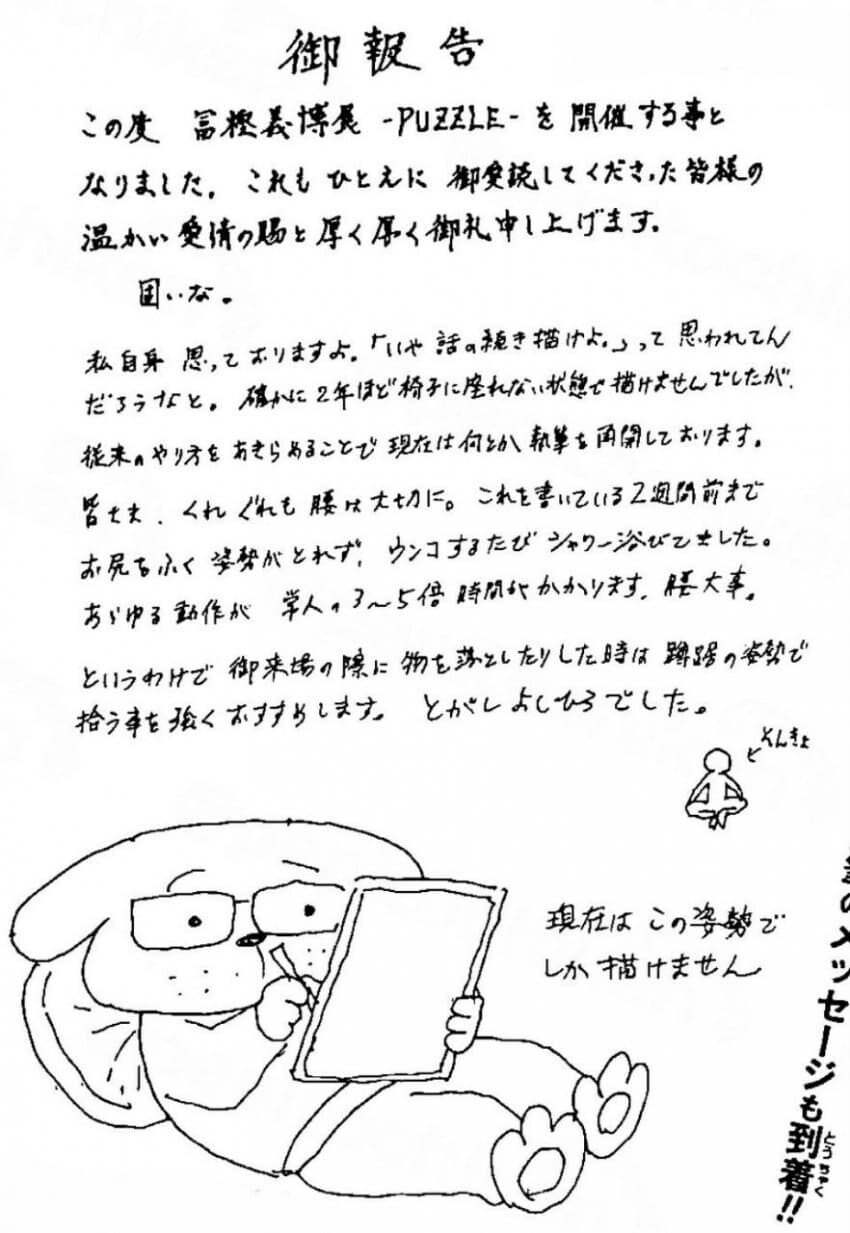 御報告
この度 冨樫義博展 -PUZZLE- を開催する事と
なりました。これもひとえに御愛読してくださった皆様の
温かい愛情の賜と厚く厚く御礼申し上げます。
固いな。
私自身 思っておりますよ。「いや 話の続き描けよ。」って思われてん
だろうなと。確かに2年ほど椅子に座れない状態で描けませんでしたが、
従来のやり方をあきらめることで現在は何とか執筆を再開しております。
皆さま、くれぐれも腰は大切に。これを書いている2週間前まで
お尻をふく姿勢がとれず、ウンコするたびシャワー浴びてました。
あらゆる動作が 常人の3〜5倍時間がかかります。腰大事。
というわけで御来場の際に物を落としたりした時は蹲踞の姿勢で
拾う事を強くおすすめします。とがしよしひろでした。
そんきょ
現在はこの姿勢で
しか描けません
のメッセージも到着!!
とうちゃく